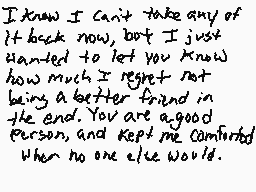 I know I can't take any of
it back now, but I just
wanted to let you know
how much I regret not
being a better friend in
the end. You are a good
person, and kept me comforted
when no one else would.